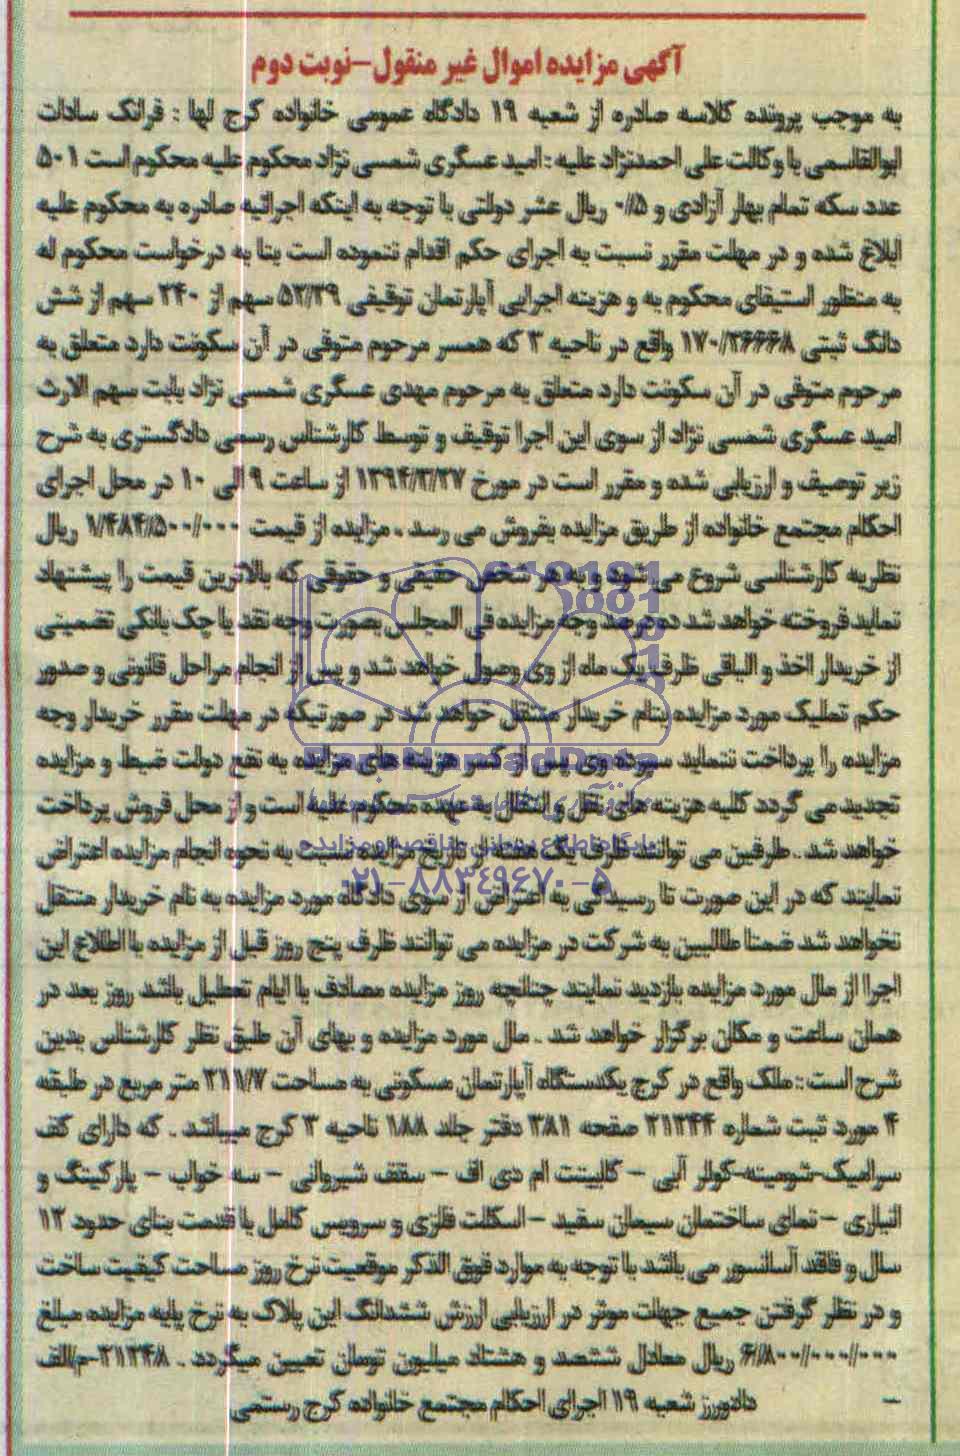 آگهی مزایده اموال غیر منقول-نوبت دوم
به موجب پرونده کلاسه صادره از شعبه ۱۹ دادگاه عمومی خانواده کرج لها : فرانک سادات
ابوالقاسمی با وکالت علی احمدنژاد علیه : امید عسگری شمسی نژاد محکوم علیه محکوم است ۵۰۱
عدد سکه تمام بهار آزادی و ۰/۵ ریال عشر دولتی با توجه به اینکه اجرائیه صادره به محکوم علیه
ابلاغ شده و در مهلت مقرر نسبت به اجرای حکم اقدام ننموده است بنا به درخواست محکوم له
به منظور استیفای محکوم به و هزینه اجرایی آپارتمان توقیفی ۵۲/۲۹ سهم از ۲۴۰ سهم از شش
دانگ ثبتی ۱۷۰/۲۶۶۶۸ واقع در ناحیه ۲ که همسر مرحوم متوفی در آن سکونت دارد متعلق به
مرحوم متوفی در آن سکونت دارد متعلق به مرحوم مهدی عسگری شمسی نژاد بابت سهم الارث
امید عسگری شمسی نژاد از سوی این اجرا توقیف و توسط کارشناس رسمی دادگستری به شرح
زیر توصیف و ارزیابی شده و مقرر است در مورخ ۱۳۹۴/۳/۲۷ از ساعت ۹ الی ۱۰ در محل اجرای
احکام مجتمع خانواده از طریق مزایده بفروش می رسد . مزایده از قیمت ۱/۴۸۴/۵۰۰/۰۰۰ ریال
نظریه کارشناسی شروع می شود و به هر شخص حقیقی و حقوقی که بالاترین قیمت را پیشنهاد
نماید فروخته خواهد شد ده درصد وجه مزایده فی المجلس بصورت وجه نقد یا چک بانکی تضمینی
از خریدار اخذ و الباقی ظرف یک ماه از وی وصول خواهد شد و پس از انجام مراحل قانونی و صدور
حکم تملیک مورد مزایده بنام خریدار منتقل خواهد شد در صورتیکه در مهلت مقرر خریدار وجه
مزایده را پرداخت ننماید سپرده وی پس از کسر هزینه های مزایده به نفع دولت ضبط و مزایده
تجدید می گردد کلیه هزینه های نقل و انتقال به عهده محکوم علیه است و از محل فروش پرداخت
خواهد شد . طرفین می توانند ظرف یک هفته از تاریخ مزایده نسبت به نحوه انجام مزایده اعتراض
نمایند که در این صورت تا رسیدگی به اعتراض از سوی دادگاه مورد مزایده به نام خریدار منتقل
نخواهد شد ضمنا طالبین به شرکت در مزایده می توانند ظرف پنج روز قبل از مزایده با اطلاع این
اجرا از مال مورد مزایده بازدید نمایند چنانچه روز مزایده مصادف با ایام تعطیل باشد روز بعد در
همان ساعت و مکان برگزار خواهد شد . مال مورد مزایده و بهای آن طبق نظر کارشناس بدین
شرح است : ملک واقع در کرج یکدستگاه آپارتمان مسکونی به مساحت ۲۱۱/۷ متر مربع در طبقه
۴ مورد ثبت شماره ۳۱۳۴۴ صفحه ۳۸۱ دفتر جلد ۱۸۸ ناحیه ۲ کرج میباشد . که دارای کف
سرامیک-شومینه-کولر آبی - کابینت ام دی اف - سقف شیروانی - سه خواب - پارکینگ و
انباری - نمای ساختمان سیمان سفید - اسکلت فلزی و سرویس کامل با قدمت بنای حدود ۱۲
سال و فاقد آسانسور می باشد با توجه به موارد فوق الذکر موقعیت نرخ روز مساحت کیفیت ساخت
و در نظر گرفتن جمیع جهات موثر در ارزیابی ارزش ششدانگ این پلاک به نرخ پایه مزایده مبلغ
۶/۸۰۰/۰۰۰/۰۰۰ ریال معادل ششصد و هشتاد میلیون تومان تعیین میگردد . ۳۱۳۴۸-م/الف
-
دادورز شعبه ۱۹ اجرای احکام مجتمع خانواده کرج رستمی
ParsNamadData
پایگاه اطلاع رسانی مناقصه و مزایده
۰۲۱-۸۸۳۴۹۶۷۰-۵